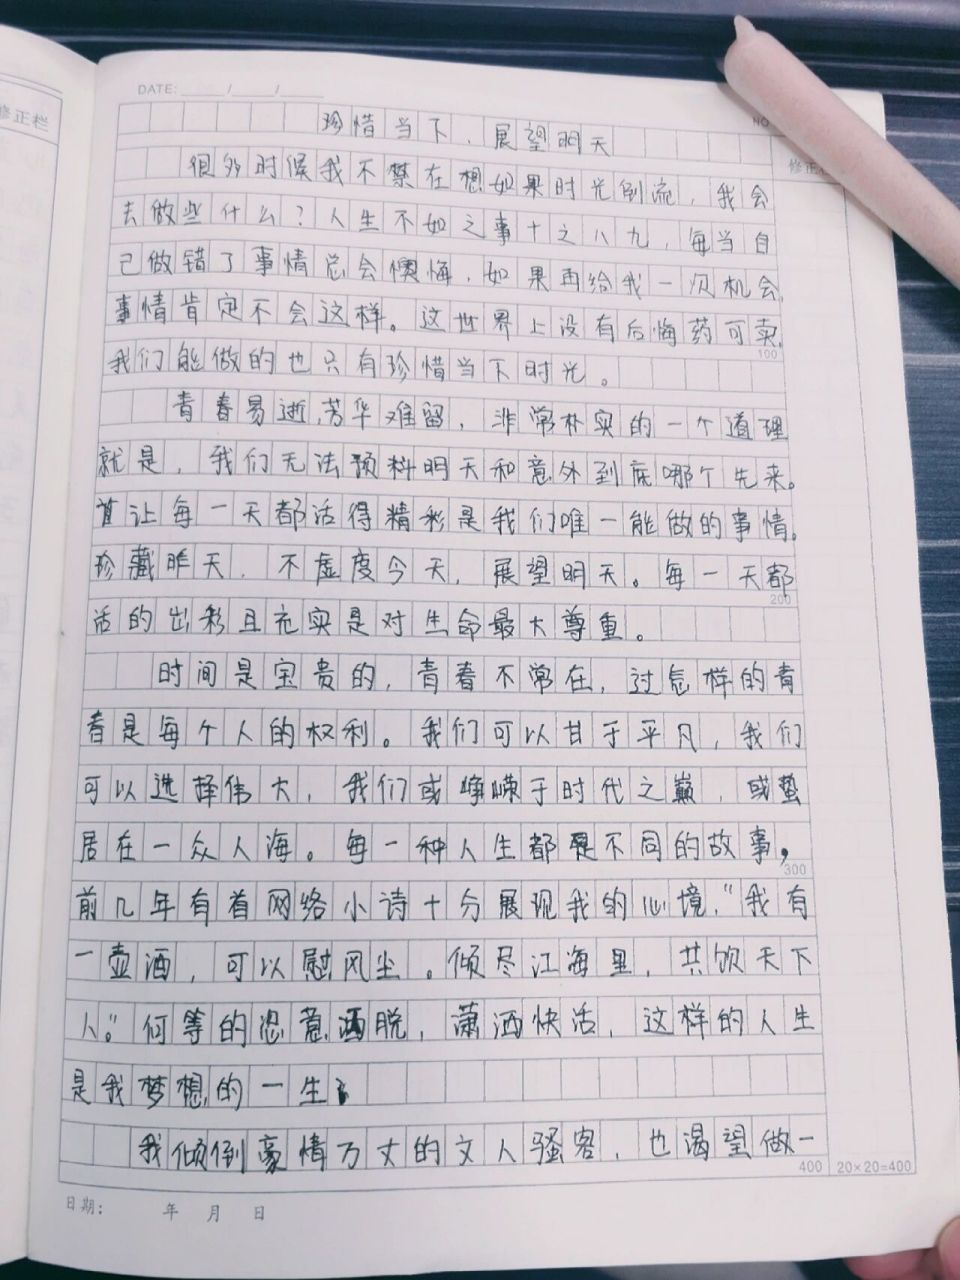 修正栏
DATE: / /
NO
珍惜当下，展望明天
修正栏
很多时候我不禁在想如果时光倒流，我会
去做些什么？人生不如之事十之八九，每当自
己做错了事情总会懊悔，如果再给我一次机会，
事情肯定不会这样。这世界上没有后悔药可卖，
100
我们能做的也只有珍惜当下时光。
青春易逝，芳华难留，非常朴实的一个道理
就是，我们无法预料明天和意外到底哪个先来。
让每一天都活得精彩是我们唯一能做的事情。
珍藏昨天，不虚度今天，展望明天。每一天都
200
活的出彩且充实是对生命最大尊重。
时间是宝贵的，青春不常在，过怎样的青
春是每个人的权利。我们可以甘于平凡，我们
可以选择伟大，我们或峥嵘于时代之巅，或蛰
居在一众人海。每一种人生都是不同的故事，
300
前几年有首网络小诗十分展现我的心境，“我有
一壶酒，可以慰风尘。倾尽江海里，共饮天下
人。”何等的恣意洒脱，潇洒快活，这样的人生
是我梦想的一生。
我倾倒豪情万丈的文人骚客，也渴望做一
400
20×20=400
日期： 年 月 日